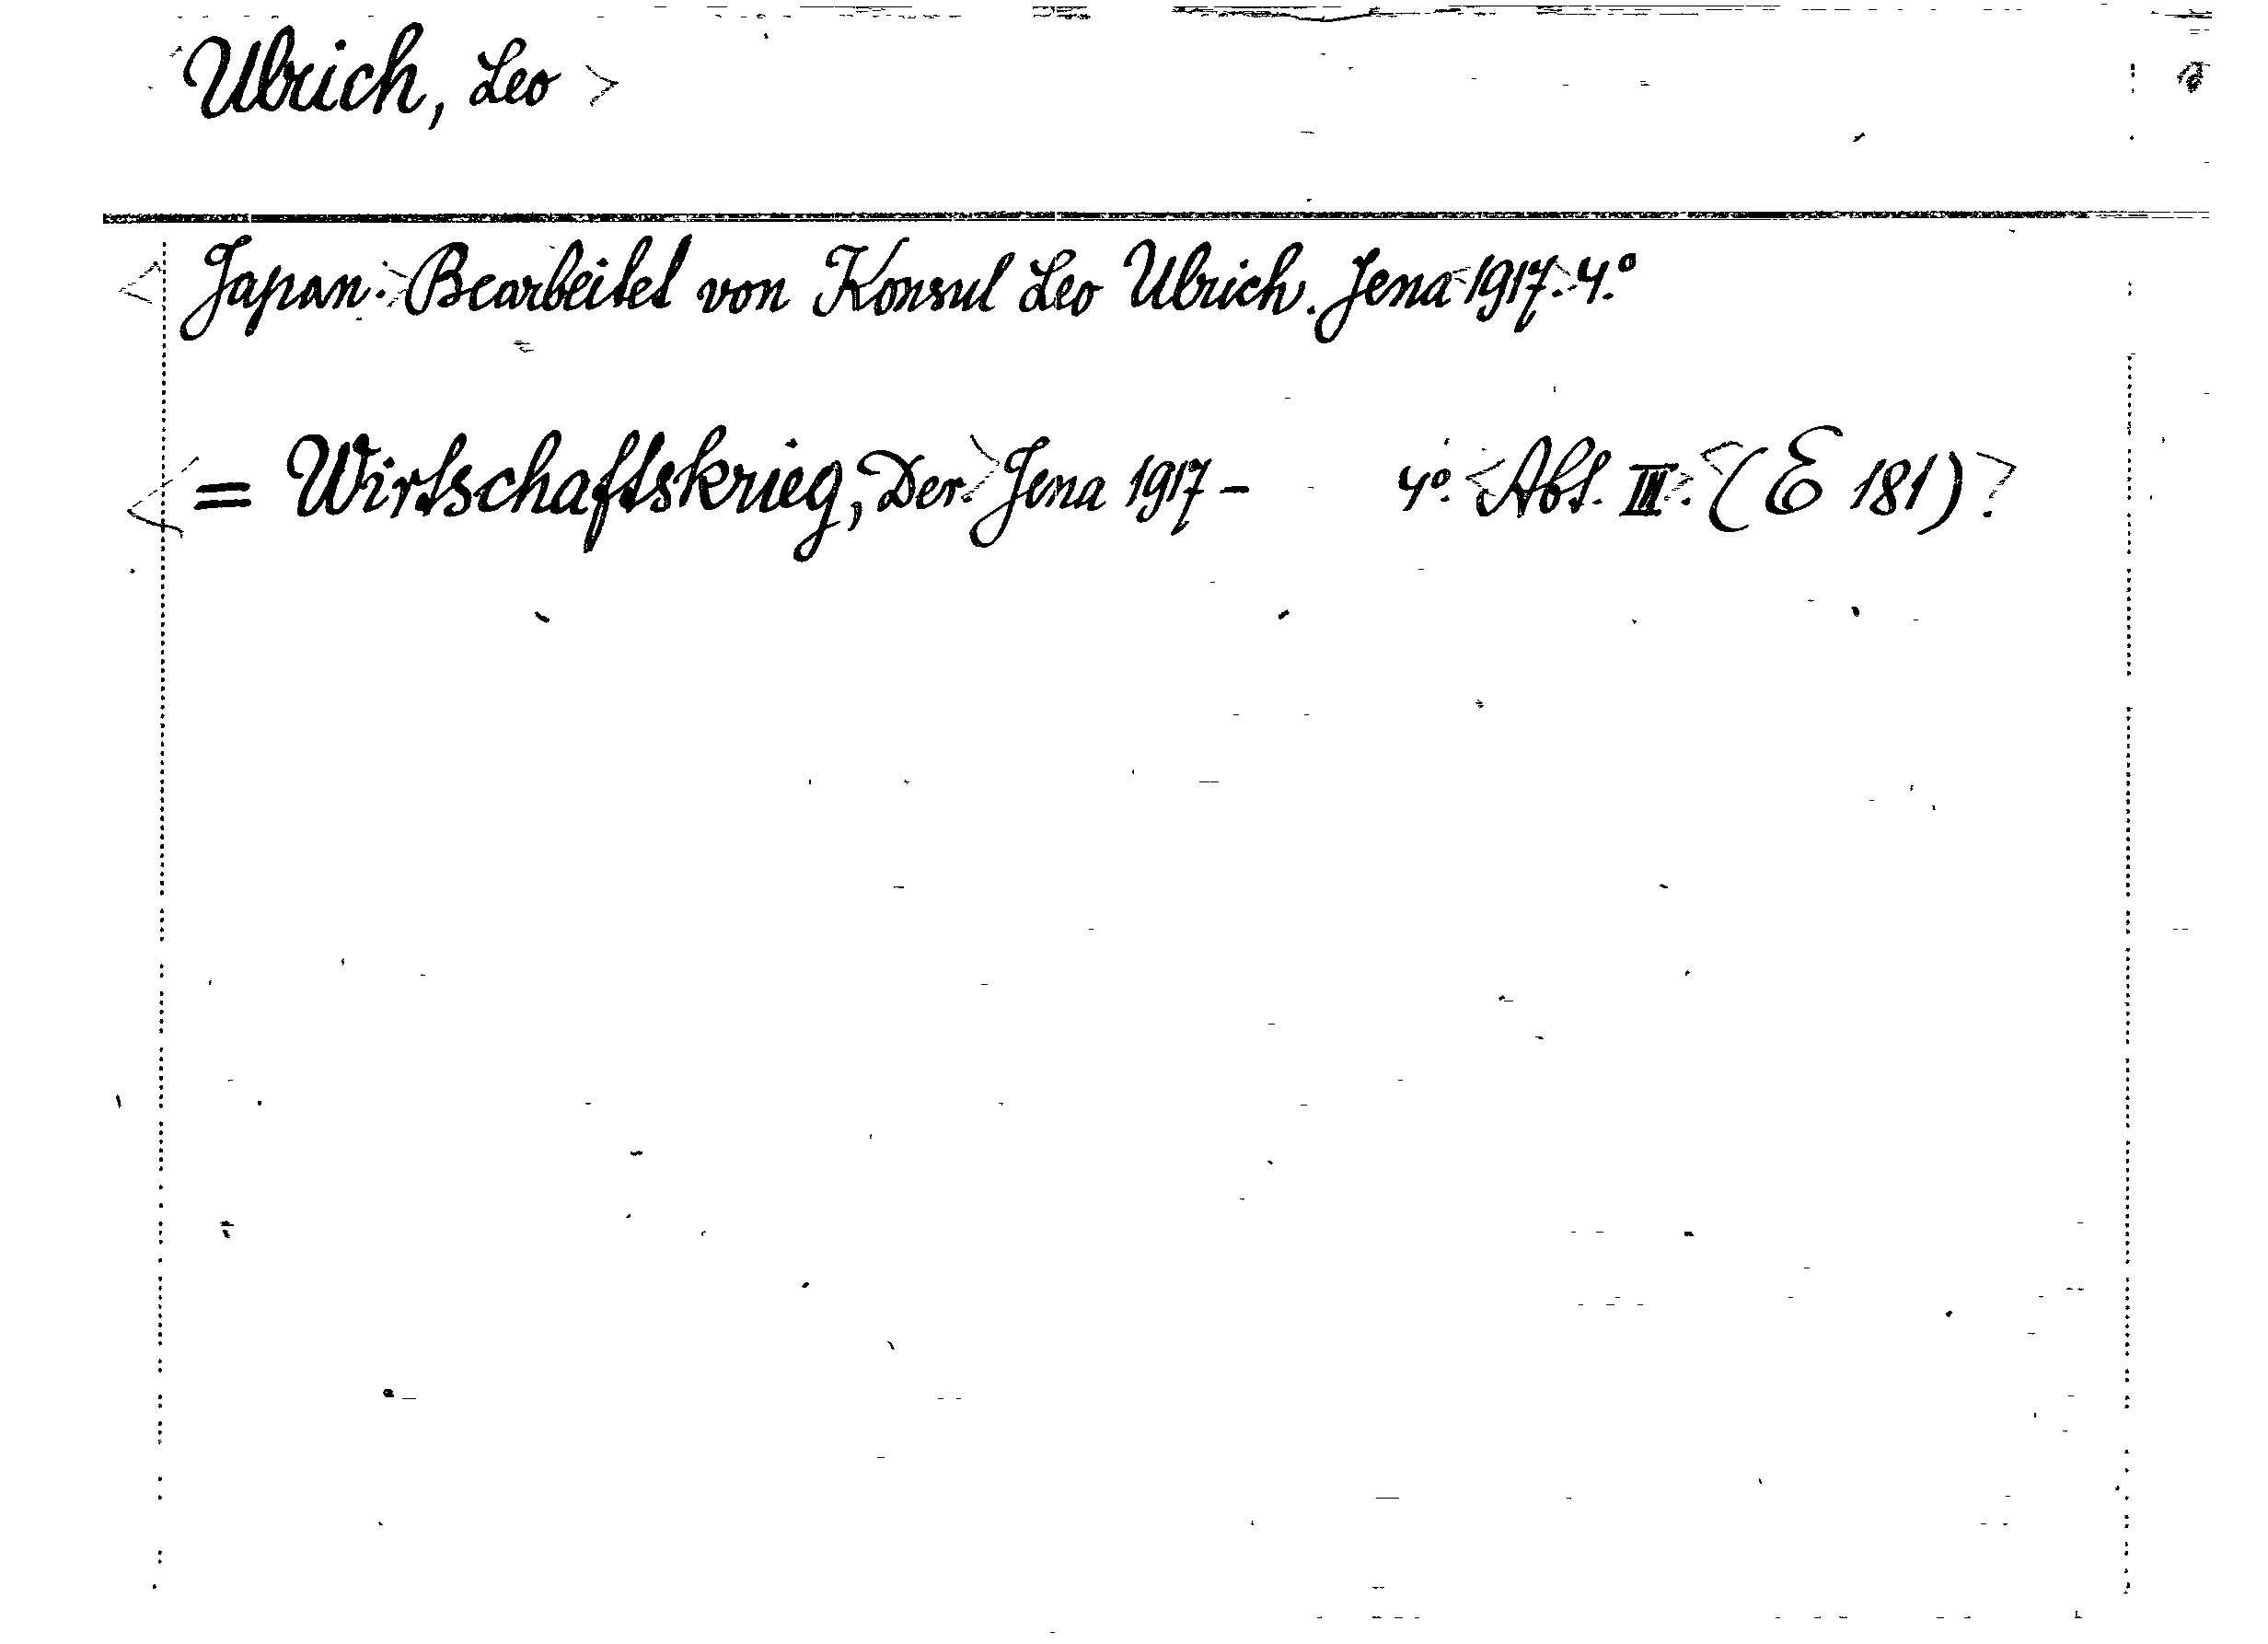 Ulrich, Leo
Japan. Bearbeitet von Konsul Leo Ulrich. Jena 1917. 4.º
= Wirtschaftskrieg, Der. Jena 1917 - 4º. Abt. III. (E 181)